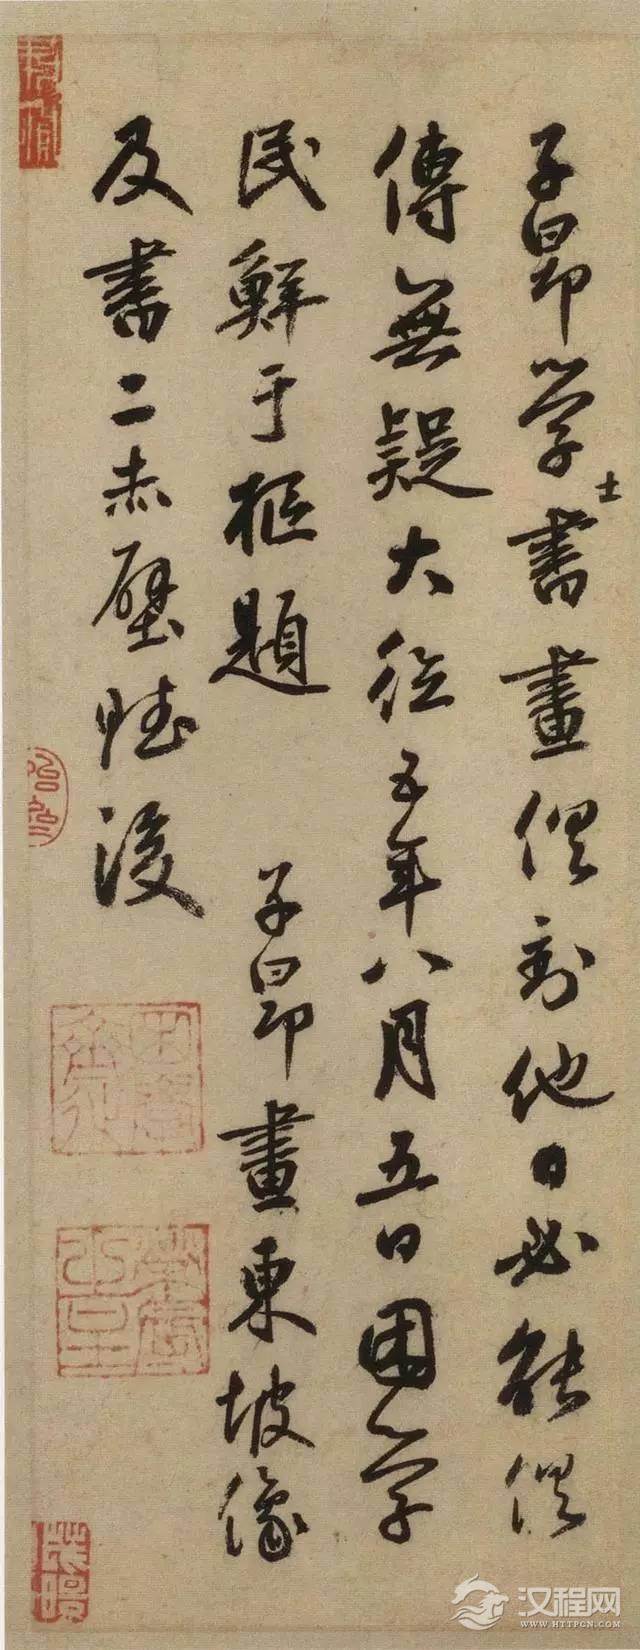 子昂学士書畫俱到他日必能俱
傳無疑大德五年八月五日困学
民鮮于樞題 子昂畫東坡像
及書二赤壁賦後
汉程网
WWW.HTTPCN.COM